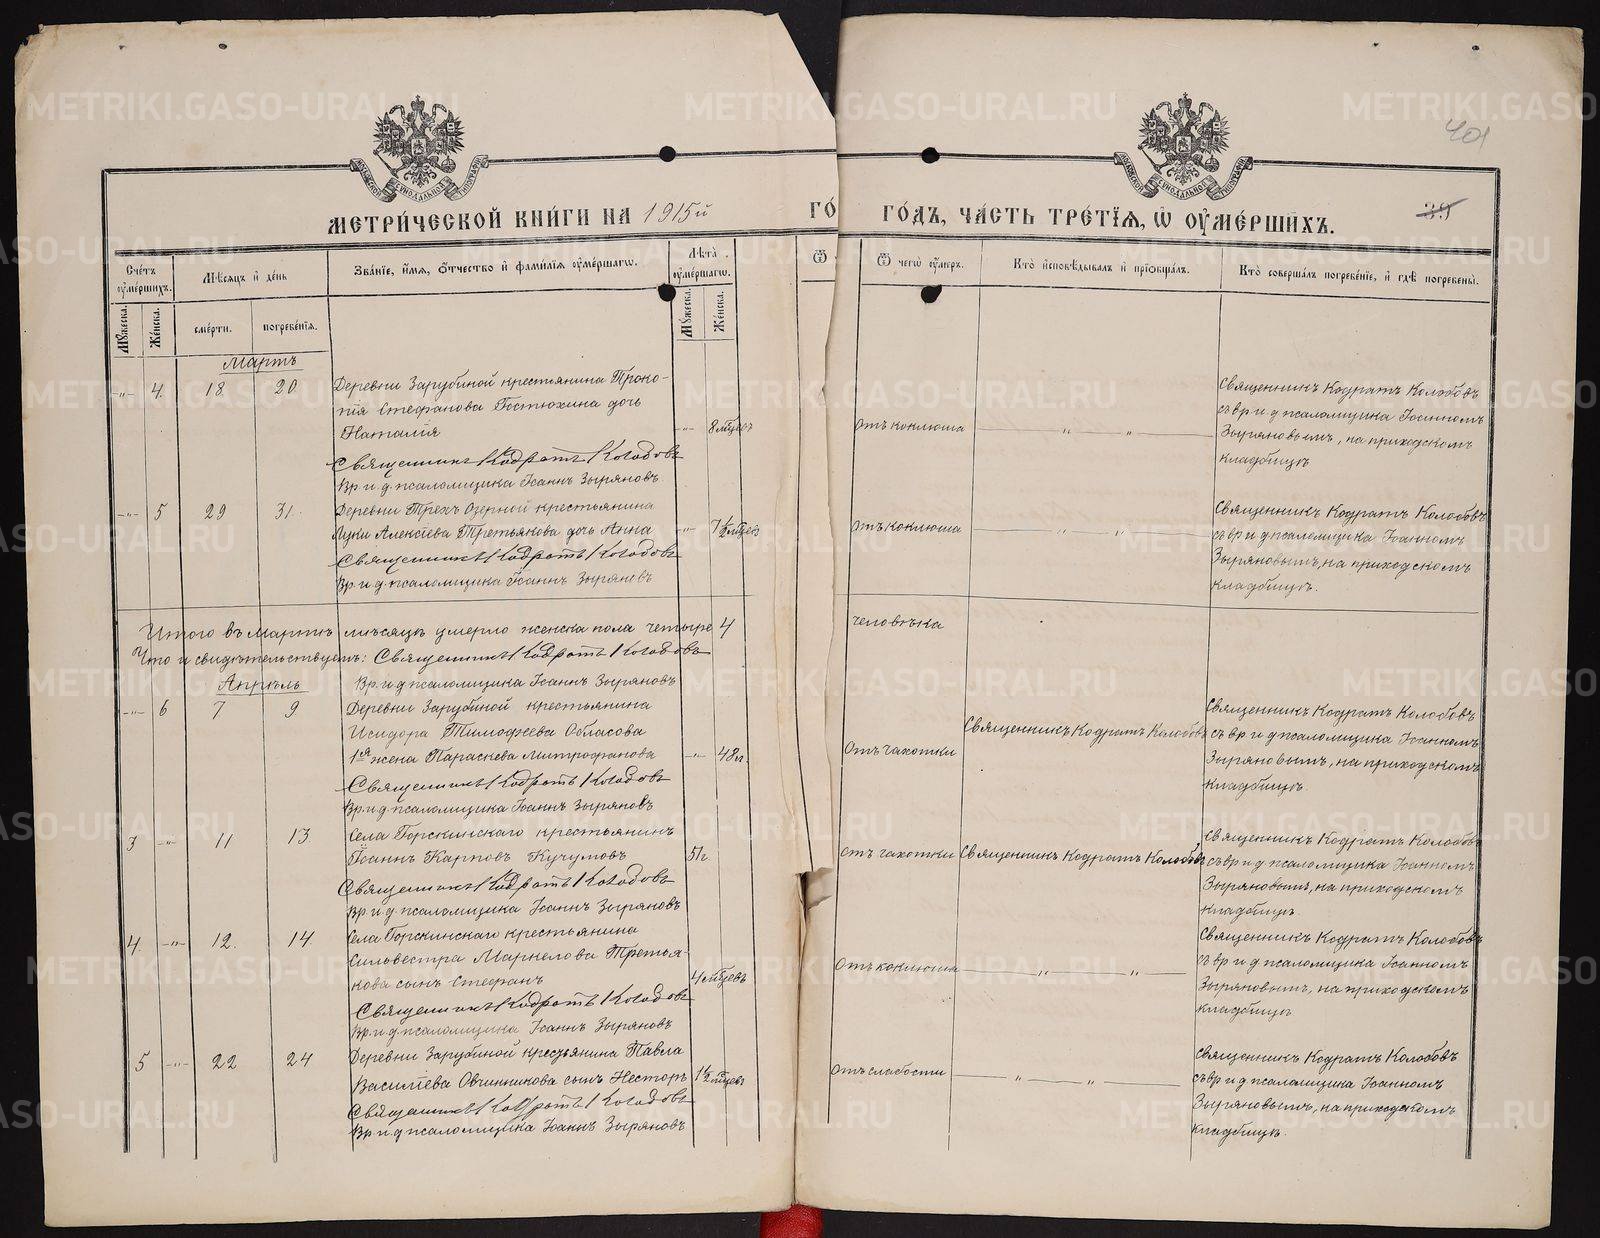 401
39
МЕТРИ́ЧЕСКОЙ КНИ́ГИ НА 1915й ГО́ ГО́ДЪ, ЧА́СТЬ ТРЕ́ТІЯ, Ѽ ОУ҆МЕ́РШИХЪ.
Сче́тъ оу҆ме́ршихъ.
Мѣ́сяцъ и҆ де́нь
Зва́нїе, и҆́мя, ѻ҆́тчество и҆ фами́лїя оу҆ме́ршагѡ.
Лѣ́та оу҆ме́ршагѡ.
Ѿ
Ѿ чегѡ̀ оу҆́меръ.
Кто̀ и҆сповѣ́дывалъ и҆ прїѡбща́лъ.
Кто̀ соверша́лъ погребе́нїе, и҆ гдѣ̀ погребены̀.
Мꙋ́жеска.
Же́нска.
сме́рти.
погребе́нїя.
Мꙋ́жеска.
Же́нска.
Мартъ
-"- 4. 18. 20.
Деревни Зарубиной крестьянина Проко-
пія Стефанова Постюхина дочь
Наталія -"- 8 мцевъ
Священникъ Кодратъ Колобовъ
Вр. и. д. псаломщика Іоаннъ Зыряновъ.
отъ коклюша
" "
Священникъ Кодратъ Колобовъ
съ вр. и. д. псаломщика Іоанномъ
Зыряновымъ, на приходскомъ
кладбищѣ
-"- 5 29 31.
Деревни Трехъ Озерной крестьянина
Луки Алексѣева Третьякова дочь Анна -"- 7½ мцев
Священникъ Кодратъ Колобовъ
Вр. и д. псаломщика Іоаннъ Зыряновъ
отъ коклюша
" "
Священникъ Кодратъ Колобовъ
съ вр и д псаломщика Іоанномъ
Зыряновымъ, на приходскомъ
кладбищѣ.
Итого въ Мартѣ мѣсяцѣ умерло женска пола четыре 4 человѣка
Что и свидѣтельствуемъ: Священникъ Кодратъ Колобовъ
Вр. и д псаломщика Іоаннъ Зыряновъ
Апрѣль
-"- 6 7 9
Деревни Зарубиной крестьянина
Исидора Тимофеева Обласова
1ая жена Параскева Митрофанова -"- 48 л.
Священникъ Кодратъ Колобовъ
Вр. и д. псаломщика Іоаннъ Зыряновъ
Отъ чахотки
Священникъ Кодратъ Колобовъ
Священникъ Кодратъ Колобовъ
съ вр и д псаломщика Іоанномъ
Зыряновымъ, на приходскомъ
кладбищѣ.
3 -"- 11 13.
Села Горскинскаго крестьянинъ
Іоаннъ Карповъ Кучумовъ 51 г.
Священникъ Кодратъ Колобовъ
Вр. и д. псаломщика Іоаннъ Зыряновъ
отъ чахотки
Священникъ Кодратъ Колобовъ
Священникъ Кодратъ Колобовъ
съ вр и д псаломщика Іоанномъ
Зыряновымъ, на приходскомъ
кладбищѣ.
4. -"- 12. 14.
Села Горскинскаго крестьянина
Сильвестра Маркелова Третья-
кова сынъ Стефанъ 4 мцевъ
Священникъ Кодратъ Колобовъ
Вр. и. д. псаломщика Іоаннъ Зыряновъ
Отъ коклюша
" "
Священникъ Кодратъ Колобовъ
съ вр и д псаломщика Іоанномъ
Зыряновымъ, на приходскомъ
кладбищѣ
5 -"- 22 24
Деревни Зарубиной крестьянина Павла
Василіева Овчинникова сынъ Несторъ 1½ мцевъ
Священникъ Кодратъ Колобовъ
Вр. и д псаломщика Іоаннъ Зыряновъ
Отъ слабости
" "
Священникъ Кодратъ Колобовъ
съ вр и д псаломщика Іоанномъ
Зыряновымъ, на приходскомъ
кладбищѣ.
METRIKI.GASO-URAL.RU